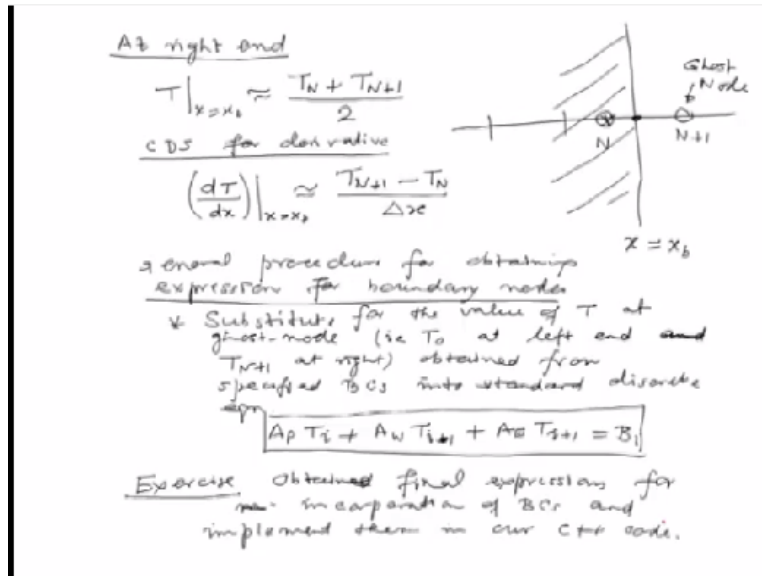 At right end
T|x=xb ≈ (TN + TN+1) / 2
CDS for derivative
(dT/dx)|x=xb ≃ (TN+1 - TN) / Δx
Ghost
Node
N
N+1
x = xb
General procedure for obtaining
expression for boundary nodes
* Substitute for the value of T at
ghost-node (ie T0 at left end and
TN+1 at right) obtained from
specified BCs into standard discrete
eqn
AP Ti + AW Ti+1 + AE Ti+1 = Bi
Exercise Obtained final expressions for
incorporation of BCs and
implement them in our C++ code.